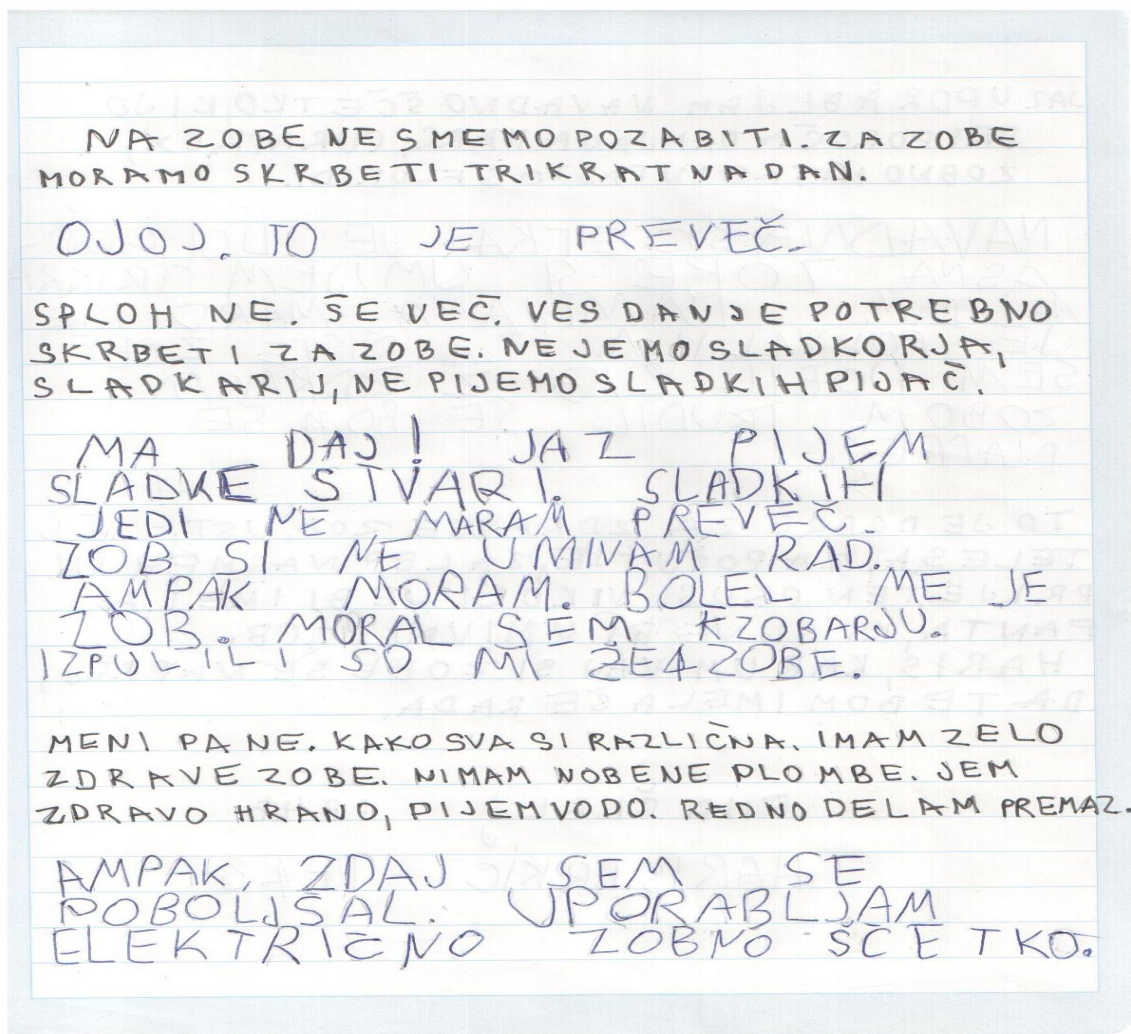 NA ZOBE NE SMEMO POZABITI. ZA ZOBE
MORAMO SKRBETI TRIKRAT NA DAN.
OJOJ. TO JE PREVEČ.
SPLOH NE. ŠE VEČ. VES DAN JE POTREBNO
SKRBETI ZA ZOBE. NE JEMO SLADKORJA,
SLADKARIJ, NE PIJEMO SLADKIH PIJAČ.
MA DAJ! JAZ PIJEM
SLADKE STVARI. SLADKIH
JEDI NE MARAM PREVEČ.
ZOB SI NE UMIVAM RAD.
AMPAK MORAM. BOLEL ME JE
ZOB. MORAL SEM K ZOBARJU.
IZPULILI SO MI ŽE 4 ZOBE.
MENI PA NE. KAKO SVA SI RAZLIČNA. IMAM ZELO
ZDRAVE ZOBE. NIMAM NOBENE PLOMBE. JEM
ZDRAVO HRANO, PIJEM VODO. REDNO DELAM PREMAZ.
AMPAK, ZDAJ SEM SE
POBOLJŠAL. UPORABLJAM
ELEKTRIČNO ZOBNO ŠČETKO.